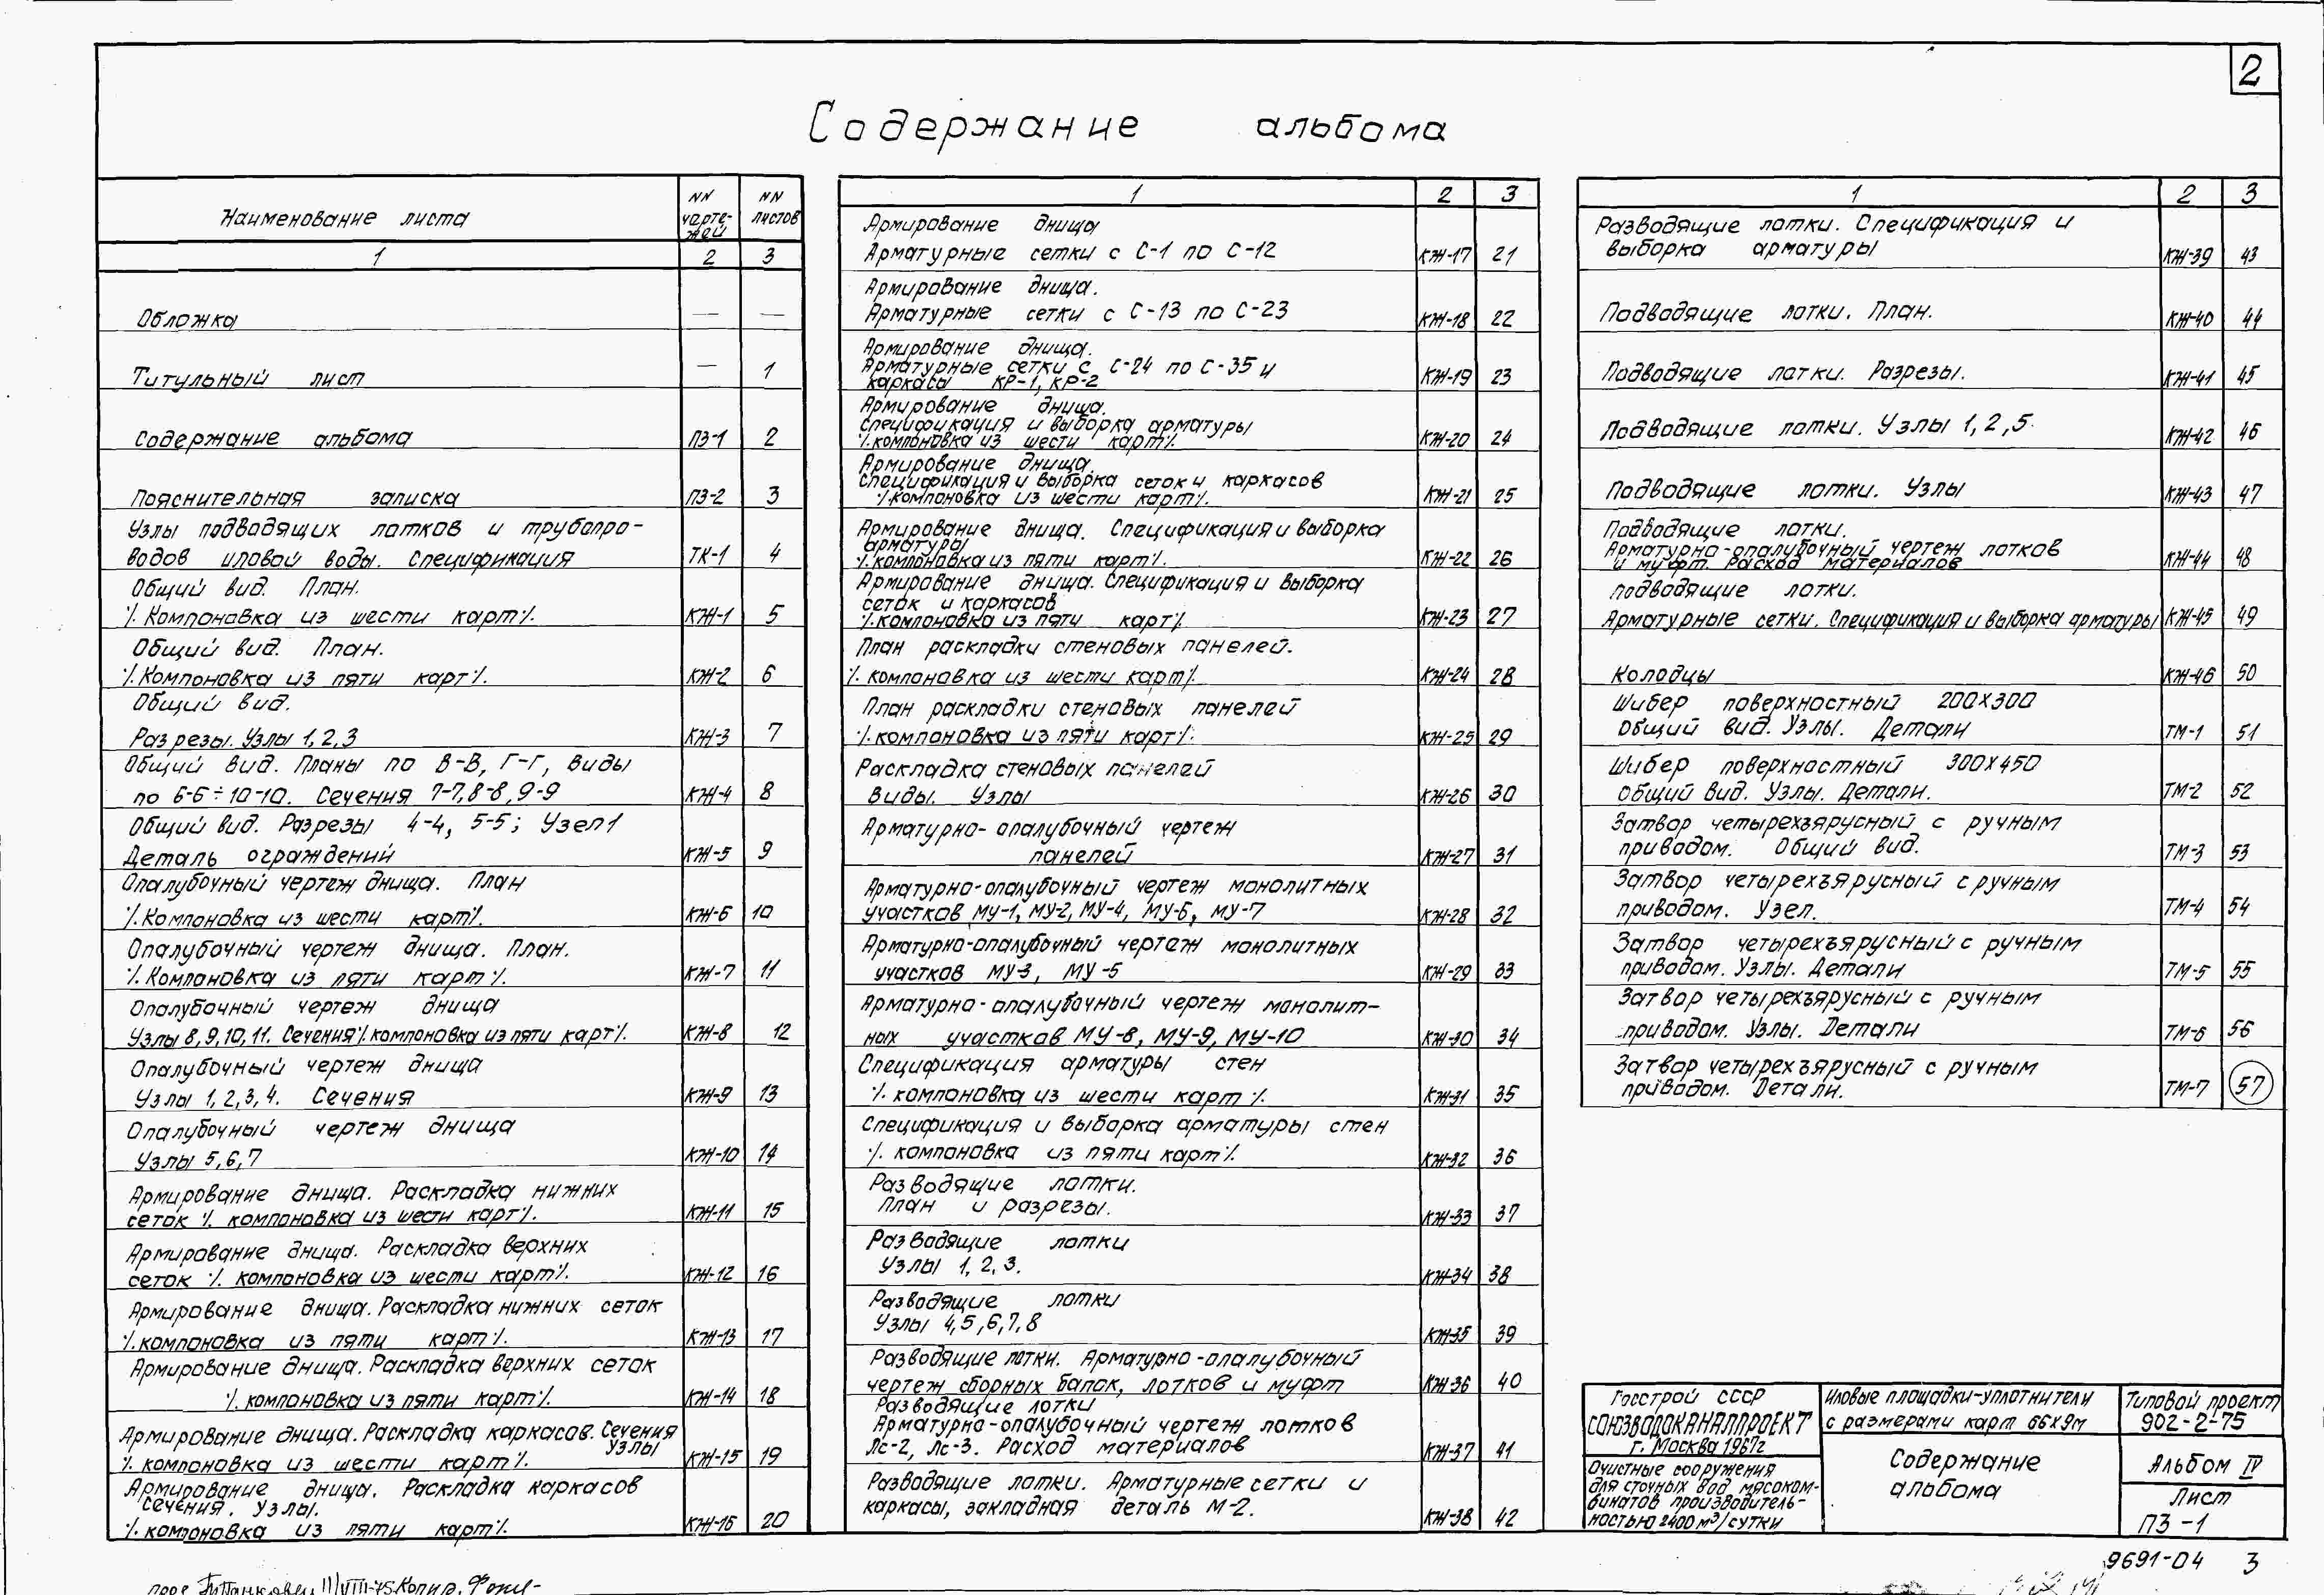 2
Содержание альбома
Наименование листа
NN чарте-жей
NN листов
1 2 3
Обложка — —
Титульный лист — 1
Содержание альбома ПЗ-1 2
Пояснительная записка ПЗ-2 3
Узлы подводящих лотков и трубопро-
водов иловой воды. Спецификация ТК-1 4
Общий вид. План.
⁒ Компоновка из шести карт ⁒. КЖ-1 5
Общий вид. План.
⁒ Компоновка из пяти карт ⁒. КЖ-2 6
Общий вид.
Разрезы. Узлы 1,2,3 КЖ-3 7
Общий вид. Планы по В-В, Г-Г, виды
по 6-6÷10-10. Сечения 7-7, 8-8, 9-9 КЖ-4 8
Общий вид. Разрезы 4-4, 5-5; Узел 1
Деталь ограждений КЖ-5 9
Опалубочный чертеж днища. План
⁒ Компоновка из шести карт ⁒. КЖ-6 10
Опалубочный чертеж днища. План.
⁒ Компоновка из пяти карт ⁒. КЖ-7 11
Опалубочный чертеж днища
Узлы 8,9,10,11. Сечения ⁒ компоновка из пяти карт ⁒. КЖ-8 12
Опалубочный чертеж днища
Узлы 1,2,3,4. Сечения КЖ-9 13
Опалубочный чертеж днища
Узлы 5,6,7 КЖ-10 14
Армирование днища. Раскладка нижних
сеток ⁒ компоновка из шести карт ⁒. КЖ-11 15
Армирование днища. Раскладка верхних
сеток ⁒ компоновка из шести карт ⁒. КЖ-12 16
Армирование днища. Раскладка нижних сеток
⁒ компоновка из пяти карт ⁒. КЖ-13 17
Армирование днища. Раскладка верхних сеток
⁒ компоновка из пяти карт ⁒. КЖ-14 18
Армирование днища. Раскладка каркасов. Сечения
Узлы
⁒ компоновка из шести карт ⁒. КЖ-15 19
Армирование днища. Раскладка каркасов
Сечения. Узлы.
⁒ компоновка из пяти карт ⁒. КЖ-16 20
1 2 3
Армирование днища
Арматурные сетки с С-1 по С-12 КЖ-17 21
Армирование днища.
Арматурные сетки с С-13 по С-23 КЖ-18 22
Армирование днища.
Арматурные сетки с С-24 по С-35 и
каркасы КР-1, КР-2 КЖ-19 23
Армирование днища.
Спецификация и выборка арматуры
⁒ компоновка из шести карт ⁒. КЖ-20 24
Армирование днища.
Спецификация и выборка сеток и каркасов
⁒ компоновка из шести карт ⁒. КЖ-21 25
Армирование днища. Спецификация и выборка
арматуры
⁒ компоновка из пяти карт ⁒. КЖ-22 26
Армирование днища. Спецификация и выборка
сеток и каркасов
⁒ компоновка из пяти карт ⁒ КЖ-23 27
План раскладки стеновых панелей.
⁒ компоновка из шести карт ⁒. КЖ-24 28
План раскладки стеновых панелей
⁒ компоновка из пяти карт ⁒. КЖ-25 29
Раскладка стеновых панелей
Виды. Узлы КЖ-26 30
Арматурно-опалубочный чертеж
панелей КЖ-27 31
Арматурно-опалубочный чертеж монолитных
участков МУ-1, МУ-2, МУ-4, МУ-6, МУ-7 КЖ-28 32
Арматурно-опалубочный чертеж монолитных
участков МУ-3, МУ-5 КЖ-29 33
Арматурно-опалубочный чертеж монолит-
ных участков МУ-8, МУ-9, МУ-10 КЖ-30 34
Спецификация арматуры стен
⁒ компоновка из шести карт ⁒. КЖ-31 35
Спецификация и выборка арматуры стен
⁒ компоновка из пяти карт ⁒. КЖ-32 36
Разводящие лотки.
План и разрезы. КЖ-33 37
Разводящие лотки
Узлы 1,2,3. КЖ-34 38
Разводящие лотки
Узлы 4,5,6,7,8 КЖ-35 39
Разводящие лотки. Арматурно-опалубочный
чертеж сборных балок, лотков и муфт КЖ-36 40
Разводящие лотки
Арматурно-опалубочный чертеж лотков
Лс-2, Лс-3. Расход материалов КЖ-37 41
Разводящие лотки. Арматурные сетки и
каркасы, закладная деталь М-2. КЖ-38 42
1 2 3
Разводящие лотки. Спецификация и
выборка арматуры КЖ-39 43
Подводящие лотки. План. КЖ-40 44
Подводящие лотки. Разрезы. КЖ-41 45
Подводящие лотки. Узлы 1,2,5. КЖ-42 46
Подводящие лотки. Узлы КЖ-43 47
Подводящие лотки.
Арматурно-опалубочный чертеж лотков
и муфт. Расход материалов КЖ-44 48
Подводящие лотки.
Арматурные сетки. Спецификация и выборка арматуры КЖ-45 49
Колодцы КЖ-46 50
Шибер поверхностный 200х300
Общий вид. Узлы. Детали ТМ-1 51
Шибер поверхностный 300х450
Общий вид. Узлы. Детали. ТМ-2 52
Затвор четырехъярусный с ручным
приводом. Общий вид. ТМ-3 53
Затвор четырехъярусный с ручным
приводом. Узел. ТМ-4 54
Затвор четырехъярусный с ручным
приводом. Узлы. Детали ТМ-5 55
Затвор четырехъярусный с ручным
приводом. Узлы. Детали ТМ-6 56
Затвор четырехъярусный с ручным
приводом. Детали. ТМ-7 57
Госстрой СССР
СОЮЗВОДОКАНАЛПРОЕКТ
г. Москва 1967г
Очистные сооружения
для сточных вод мясоком-
бинатов производитель-
ностью 2400 м³/сутки
Иловые площадки-уплотнители
с размерами карт 66х9м
Содержание
альбома
Типовой проект
902-2-75
Альбом IV
Лист
ПЗ-1
9691-04 3